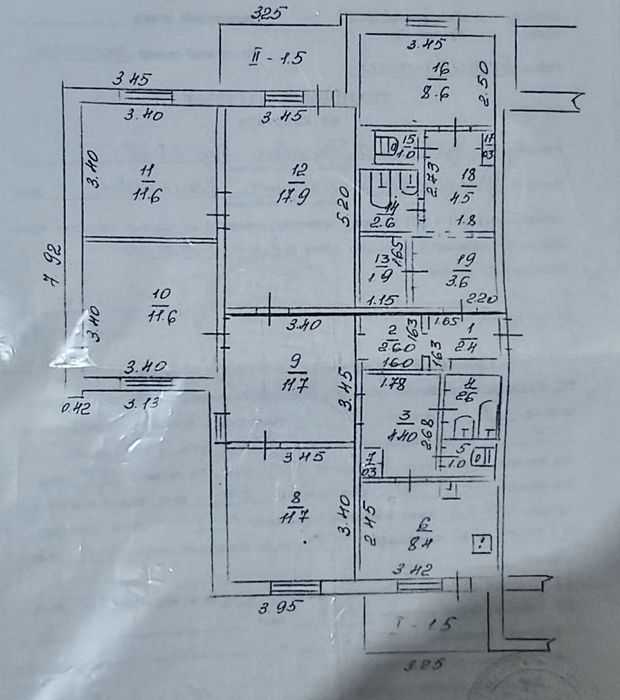 3.25
3.45
II - 1.5
3.45
16
8.6
2.50
3.40
3.45
3.40
11
11.6
12
17.9
5.20
15
1.0
17
0.3
2.73
18
4.5
14
2.6
1.8
7.92
13
1.9
1.65
19
3.6
10
11.6
1.15
2.20
3.40
3.40
2
2.60
1.63
1.65
1
2.4
1.60
1.63
3.40
9
11.7
3.45
1.78
4
2.6
0.42
3.13
3
4.40
2.68
3.45
7
0.3
5
1.0
8
11.7
3.40
2.45
6
8.4
3.42
3.95
I - 1.5
3.25